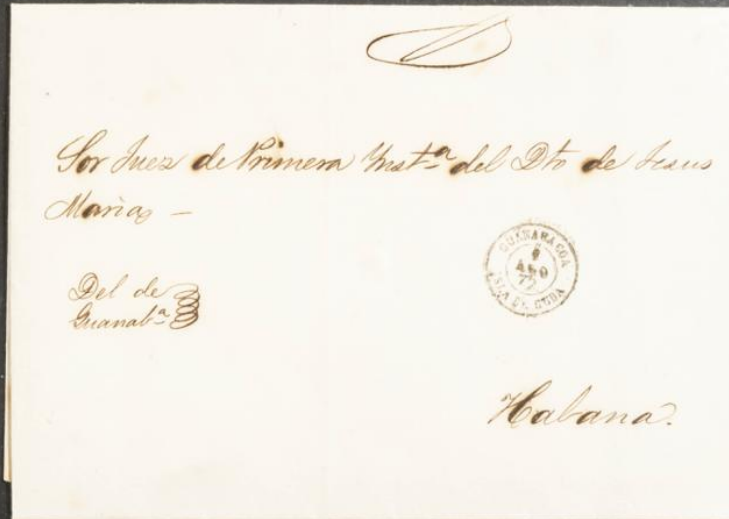 Sor Juez de Primera Ynst.ª del Dto de Jesus
Maria
Del de
Guanab.ª
GUANABACOA
AGO
72
ISLA DE CUBA
Habana.